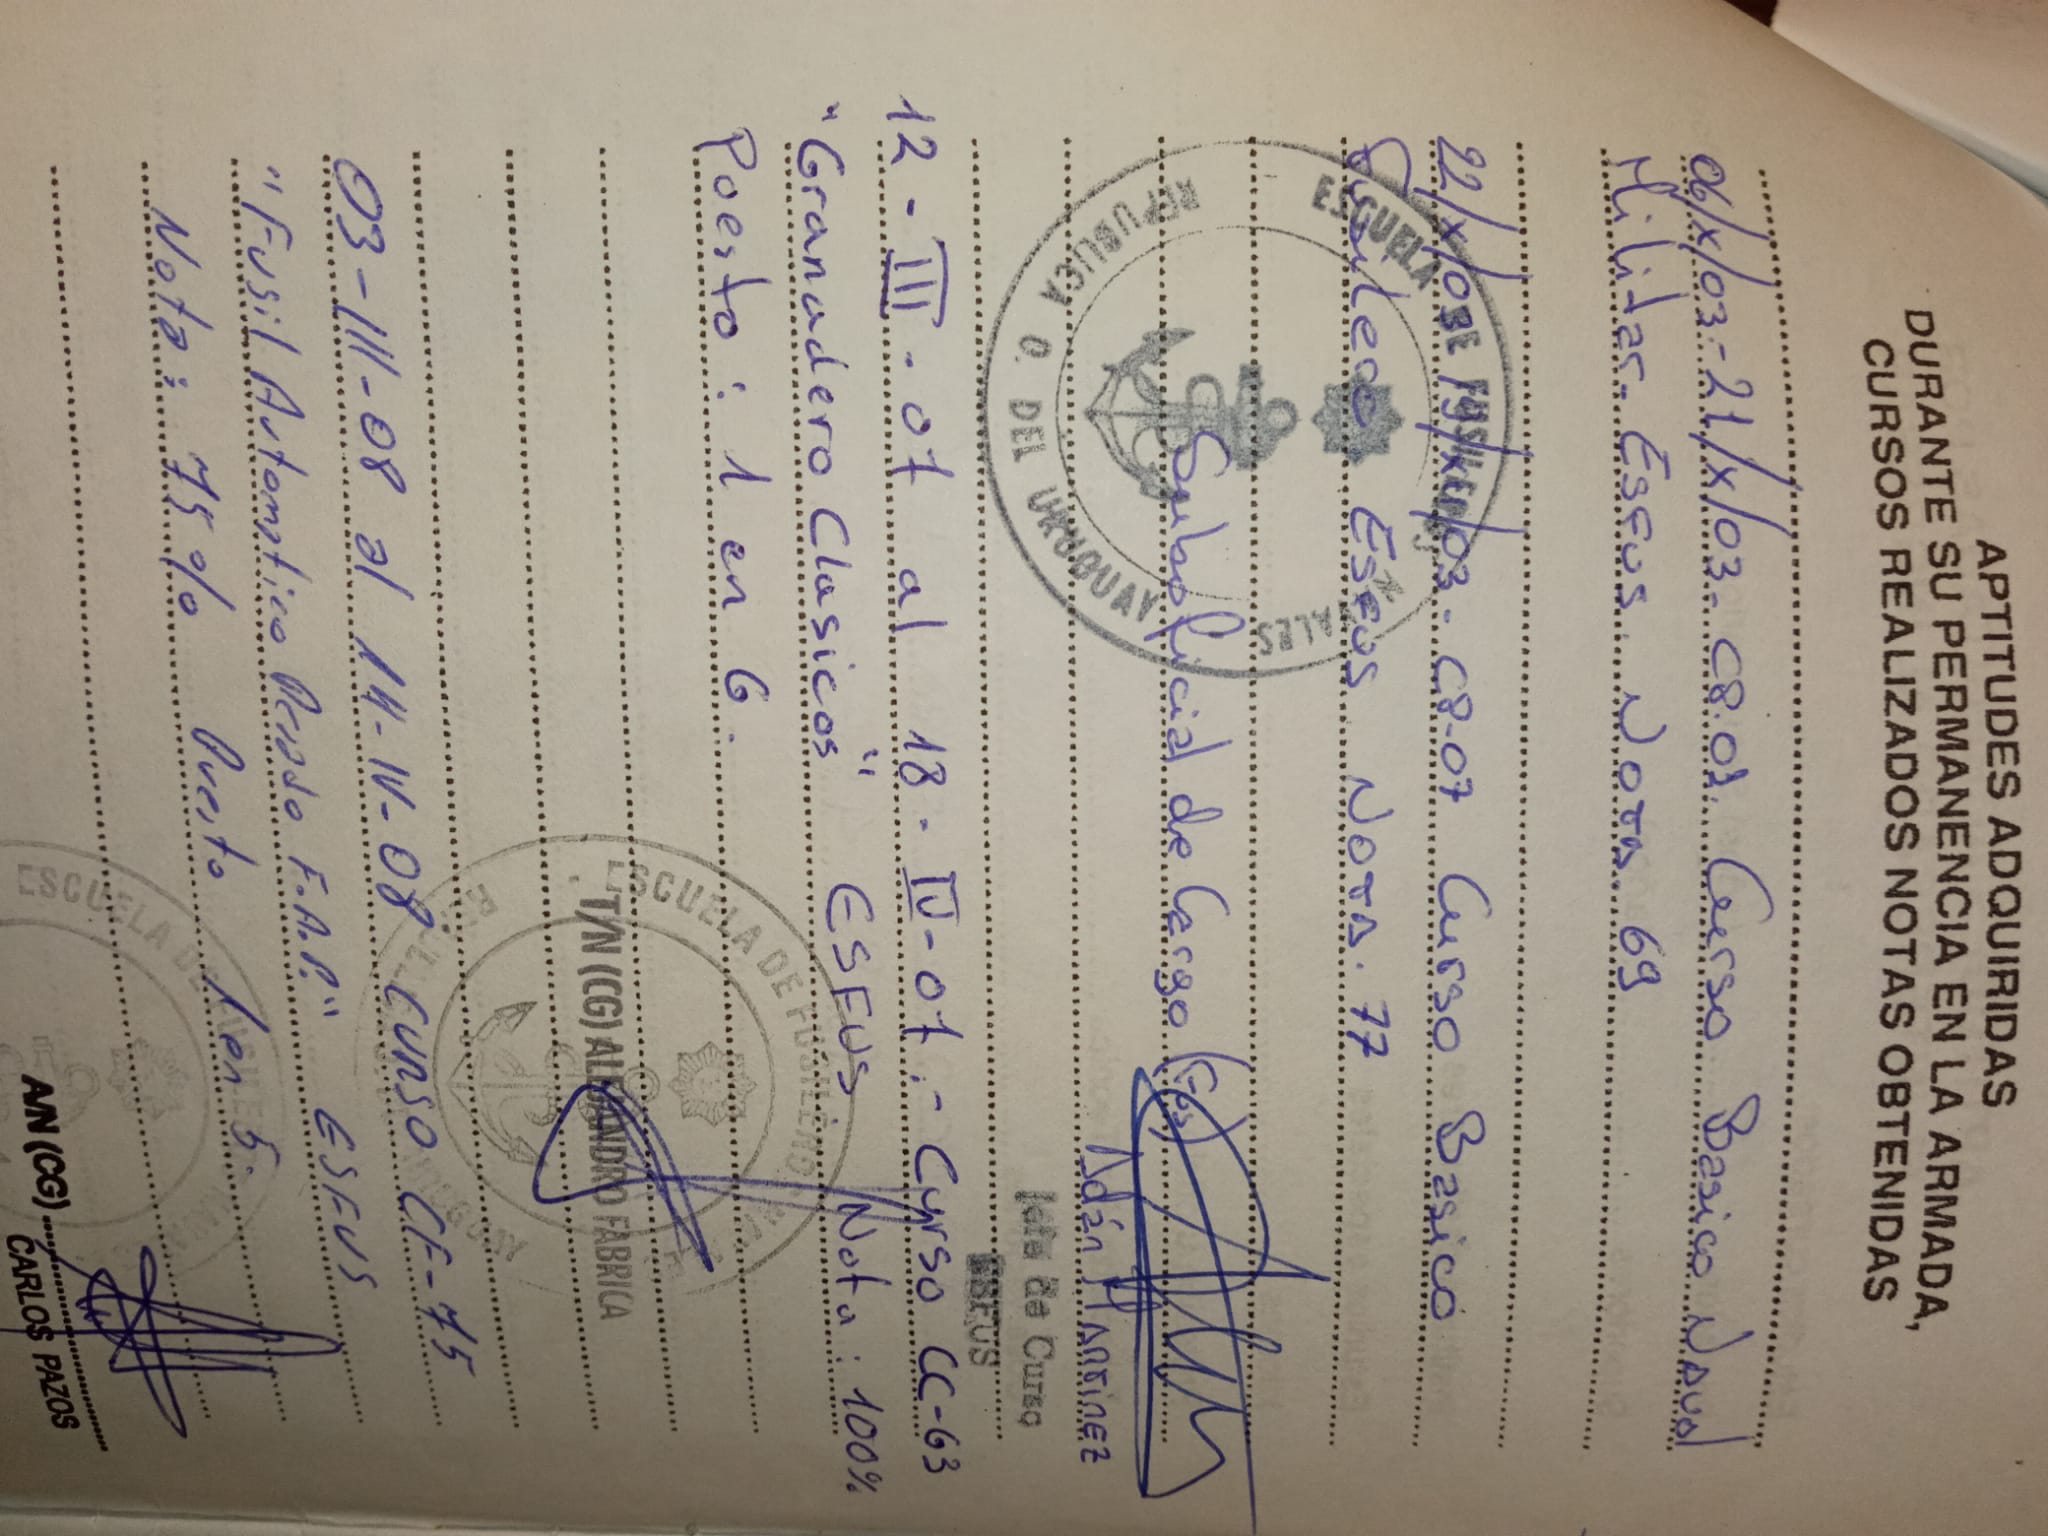 APTITUDES ADQUIRIDAS
DURANTE SU PERMANENCIA EN LA ARMADA,
CURSOS REALIZADOS NOTAS OBTENIDAS
06/X/03-21/X/03- C8.01. Curso Basico Naval
Militar- ESFUS. NOTA. 69
22/X/03 19/XII/03- C8-07 Curso Basico
Fusilero ESFUS NOTA. 77
ESCUELA DE FUSILEROS NAVALES
REPUBLICA O. DEL URUGUAY
Suboficial de Cargo (Fus)
Adán MARTINEZ
Jefe de Curso
ESFUS
12 - III - 07 al 18 - IV - 07.- Curso CC-63
"Granadero Clasicos" ESFUS. Nota: 100%
Puesto: 1 en 6.
ESCUELA DE FUSILEROS NAVALES
T/N (CG) ALEJANDRO FABRICA
03-III-08 al 14-IV-08 CURSO CF-75
"Fusil Automatico Pesado F.A.P." ESFUS
Nota: 75% Puesto 1 en 5.
ESCUELA DE FUSILE
A/N (CG)
CARLOS PAZOS